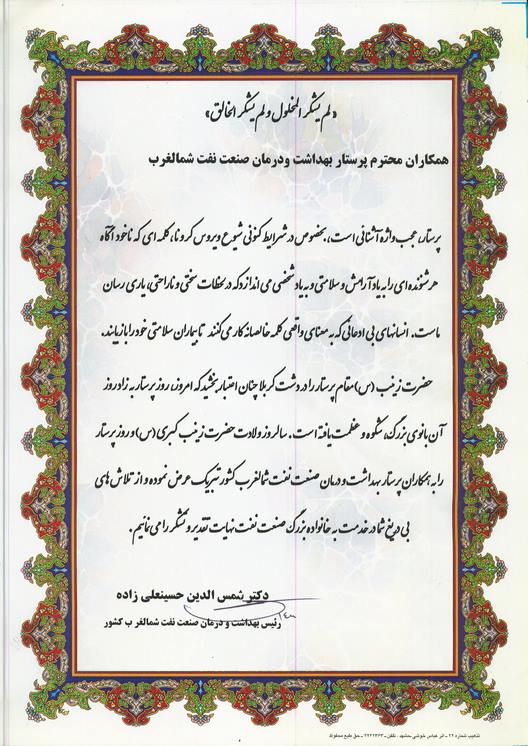 «لم یشکر المخلول و لم یشکر الخالق»
همکاران محترم پرستار بهداشت ودرمان صنعت نفت شمالغرب
پرستار، عجب واژه آشنائی است، بخصوص در شرایط کنونی شیوع ویروس کرونا، کلمه ای که ناخودآگاه
هر شنونده ای را به یاد آرامش و سلامتی و به یاد شخصی می اندازد که در لحظات سختی و ناراحتی، یاری رسان
ماست. انسانهای بی ادعائی که به معنای واقعی کلمه خالصانه کار می کنند تا بیماران سلامتی خود را بازیابند.
حضرت زینب (س) مقام پرستار را در دشت کربلا چنان اعتبار بخشید که امروز، روز پرستار به زادروز
آن بانوی بزرگ، شکوه و عظمت یافته است. سالروز ولادت حضرت زینب کبری (س) و روز پرستار
را به همکاران پرستار بهداشت و درمان صنعت نفت شمالغرب کشور تبریک عرض نموده و از تلاش های
بی دریغ شما در خدمت به خانواده بزرگ صنعت نفت نهایت تقدیر و تشکر را می نمائیم.
دکتر شمس الدین حسینعلی زاده
رئیس بهداشت و درمان صنعت نفت شمالغرب کشور
تذهیب شماره ۲۲ ـ اثر عباس خوشی ـ مشهد ـ تلفن ـ ۲۲۲۲۳۶۳ ـ حق طبع محفوظ